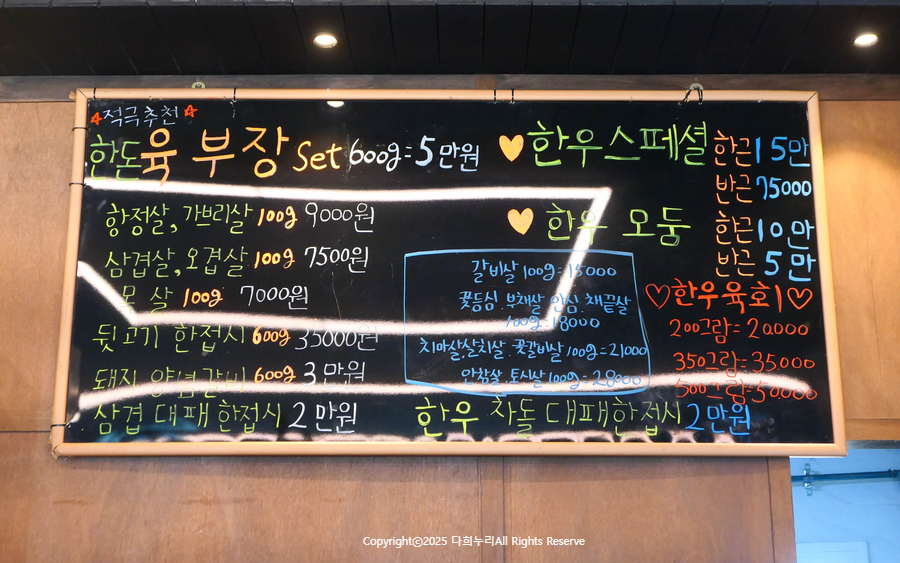 ☆적극추천☆
한돈육부장 Set 600g=5만원
항정살, 가브리살 100g 9000원
삼겹살, 오겹살 100g 7500원
목살 100g 7000원
뒷고기 한접시 600g 35000원
돼지 양념갈비 600g 3만원
삼겹 대패 한접시 2만원
♡한우스페셜 한근 15만
반근 75000
♡한우 모둠 한근 10만
반근 5만
갈비살 100g=15000
꽃등심. 부채살 안심. 채끝살
100g=18000
치마살,살치살. 꽃갈비살 100g=21000
안창살. 토시살 100g=28000
♡한우육회♡
200그람=20000
350그람=35,000
500그람=50,000
한우 차돌 대패한접시 2만원
Copyrightⓒ2025 다희누리All Rights Reserve